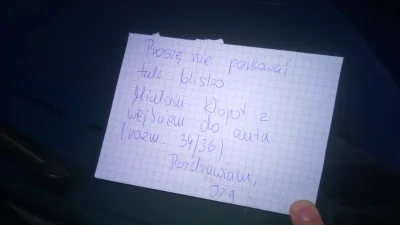 Proszę nie parkować
tak blisko.
Miałam kłopot z
wejściem do auta
(rozm. 34/36)
Pozdrawiam,